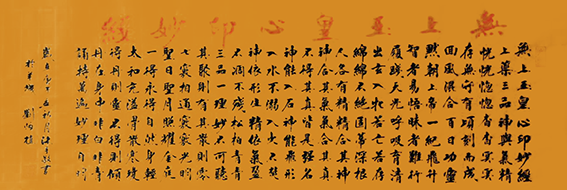 無上玉皇心印妙經
無上玉皇心印妙經
上藥三品神與氣精
恍恍惚惚杳杳冥冥
存無守有頃刻而成
回風混合百日功靈
默朝上帝一紀飛升
智者易悟昧者難行
履踐天光呼吸育清
出玄入牝若亡若存
綿綿不絕固蒂深根
人各有精精合其神
神合其氣氣合其真
不得其真皆是強名
神能入石神能飛形
入水不溺入火不焚
神依形生精依氣盈
不凋不殘松柏青青
三品一理妙不可聽
其聚則有其散則零
七竅相通竅竅光明
聖日聖月照耀金庭
一得永得自然身輕
太和充溢骨散寒瓊
得丹則靈不得則傾
丹在身中非白非青
誦持萬遍妙理自明